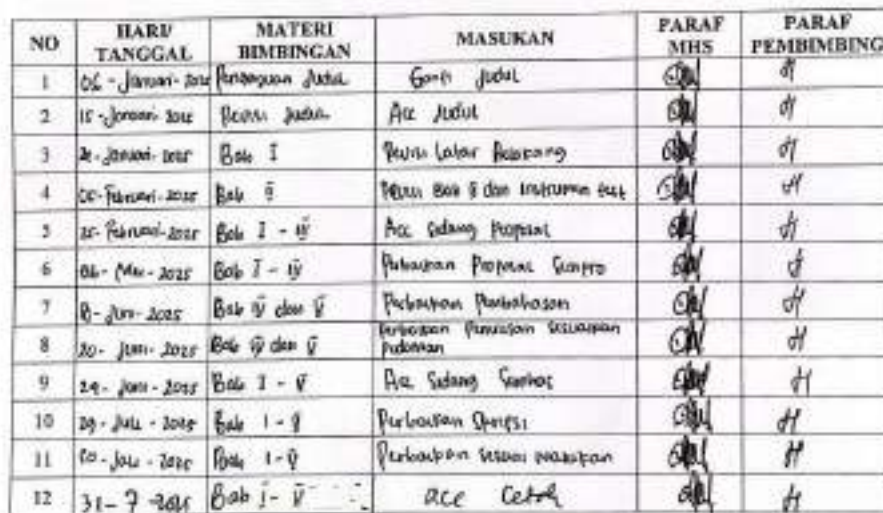 NO HARI/ TANGGAL MATERI BIMBINGAN MASUKAN PARAF MHS PARAF PEMBIMBING
1 06 - Januari - 2025 Pengajuan Judul Ganti Judul
2 15 - Januari - 2025 Revisi Judul Acc Judul
3 Januari - 2025 Bab I Revisi Latar Belakang
4 05 - Februari - 2025 Bab II Revisi Bab II dan Instrumen
5 25 - Februari - 2025 Bab I - IV Acc Sidang Proposal
6 06 - Mei - 2025 Bab I - IV Perbaikan Proposal Sempro
7 Juni - 2025 Bab IV dan V Perbaikan Pembahasan
8 20 - Juni - 2025 Bab IV dan V Perbaikan Penulisan Sesuaikan Pedoman
9 29 - Juni - 2025 Bab I - V Acc Sidang Semhas
10 29 - Juli - 2025 Bab I - V Perbaikan Skripsi
11 Juli - 2025 Bab I - V Perbaikan sesuai masukan
12 31 - 7 - 2025 Bab I - V acc Cetak